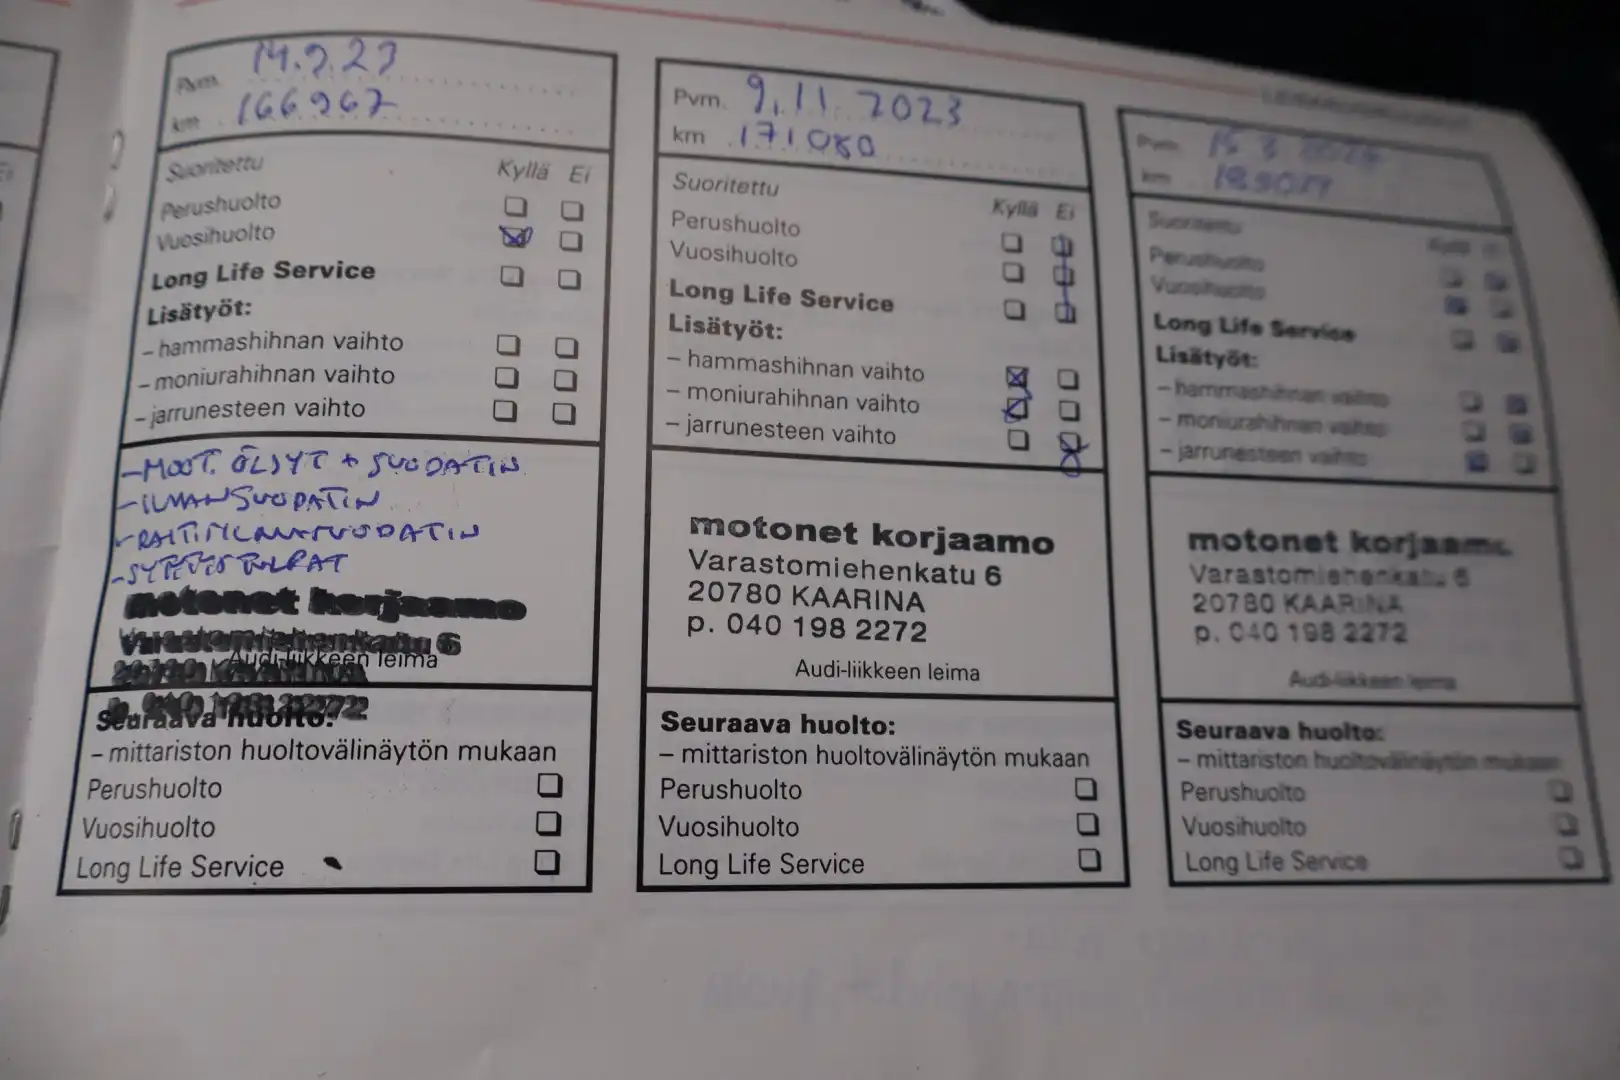 Pvm. 14.9.23
km 166967
Suoritettu Kyllä Ei
Perushuolto
Vuosihuolto
Long Life Service
Lisätyöt:
– hammashihnan vaihto
– moniurahihnan vaihto
– jarrunesteen vaihto
– MOOT. ÖLJYT + SUODATIN
– ILMANSUODATIN
– RAITISILMANSUODATIN
motonet korjaamo
Varastomiehenkatu 6
Audi-liikkeen leima
Seuraava huolto:
– mittariston huoltovälinäytön mukaan
Perushuolto
Vuosihuolto
Long Life Service
Pvm. 9.11.2023
km 171080
Suoritettu Kyllä Ei
Perushuolto
Vuosihuolto
Long Life Service
Lisätyöt:
– hammashihnan vaihto
– moniurahihnan vaihto
– jarrunesteen vaihto
motonet korjaamo
Varastomiehenkatu 6
20780 KAARINA
p. 040 198 2272
Audi-liikkeen leima
Seuraava huolto:
– mittariston huoltovälinäytön mukaan
Perushuolto
Vuosihuolto
Long Life Service
Pvm.
km
Suoritettu Kyllä
Perushuolto
Vuosihuolto
Long Life Service
Lisätyöt:
– hammashihnan vaihto
– moniurahihnan vaihto
– jarrunesteen vaihto
motonet korjaamo
Varastomiehenkatu 6
20780 KAARINA
p. 040 198 2272
Audi-liikkeen leima
Seuraava huolto:
– mittariston huoltovälinäytön mukaan
Perushuolto
Vuosihuolto
Long Life Service